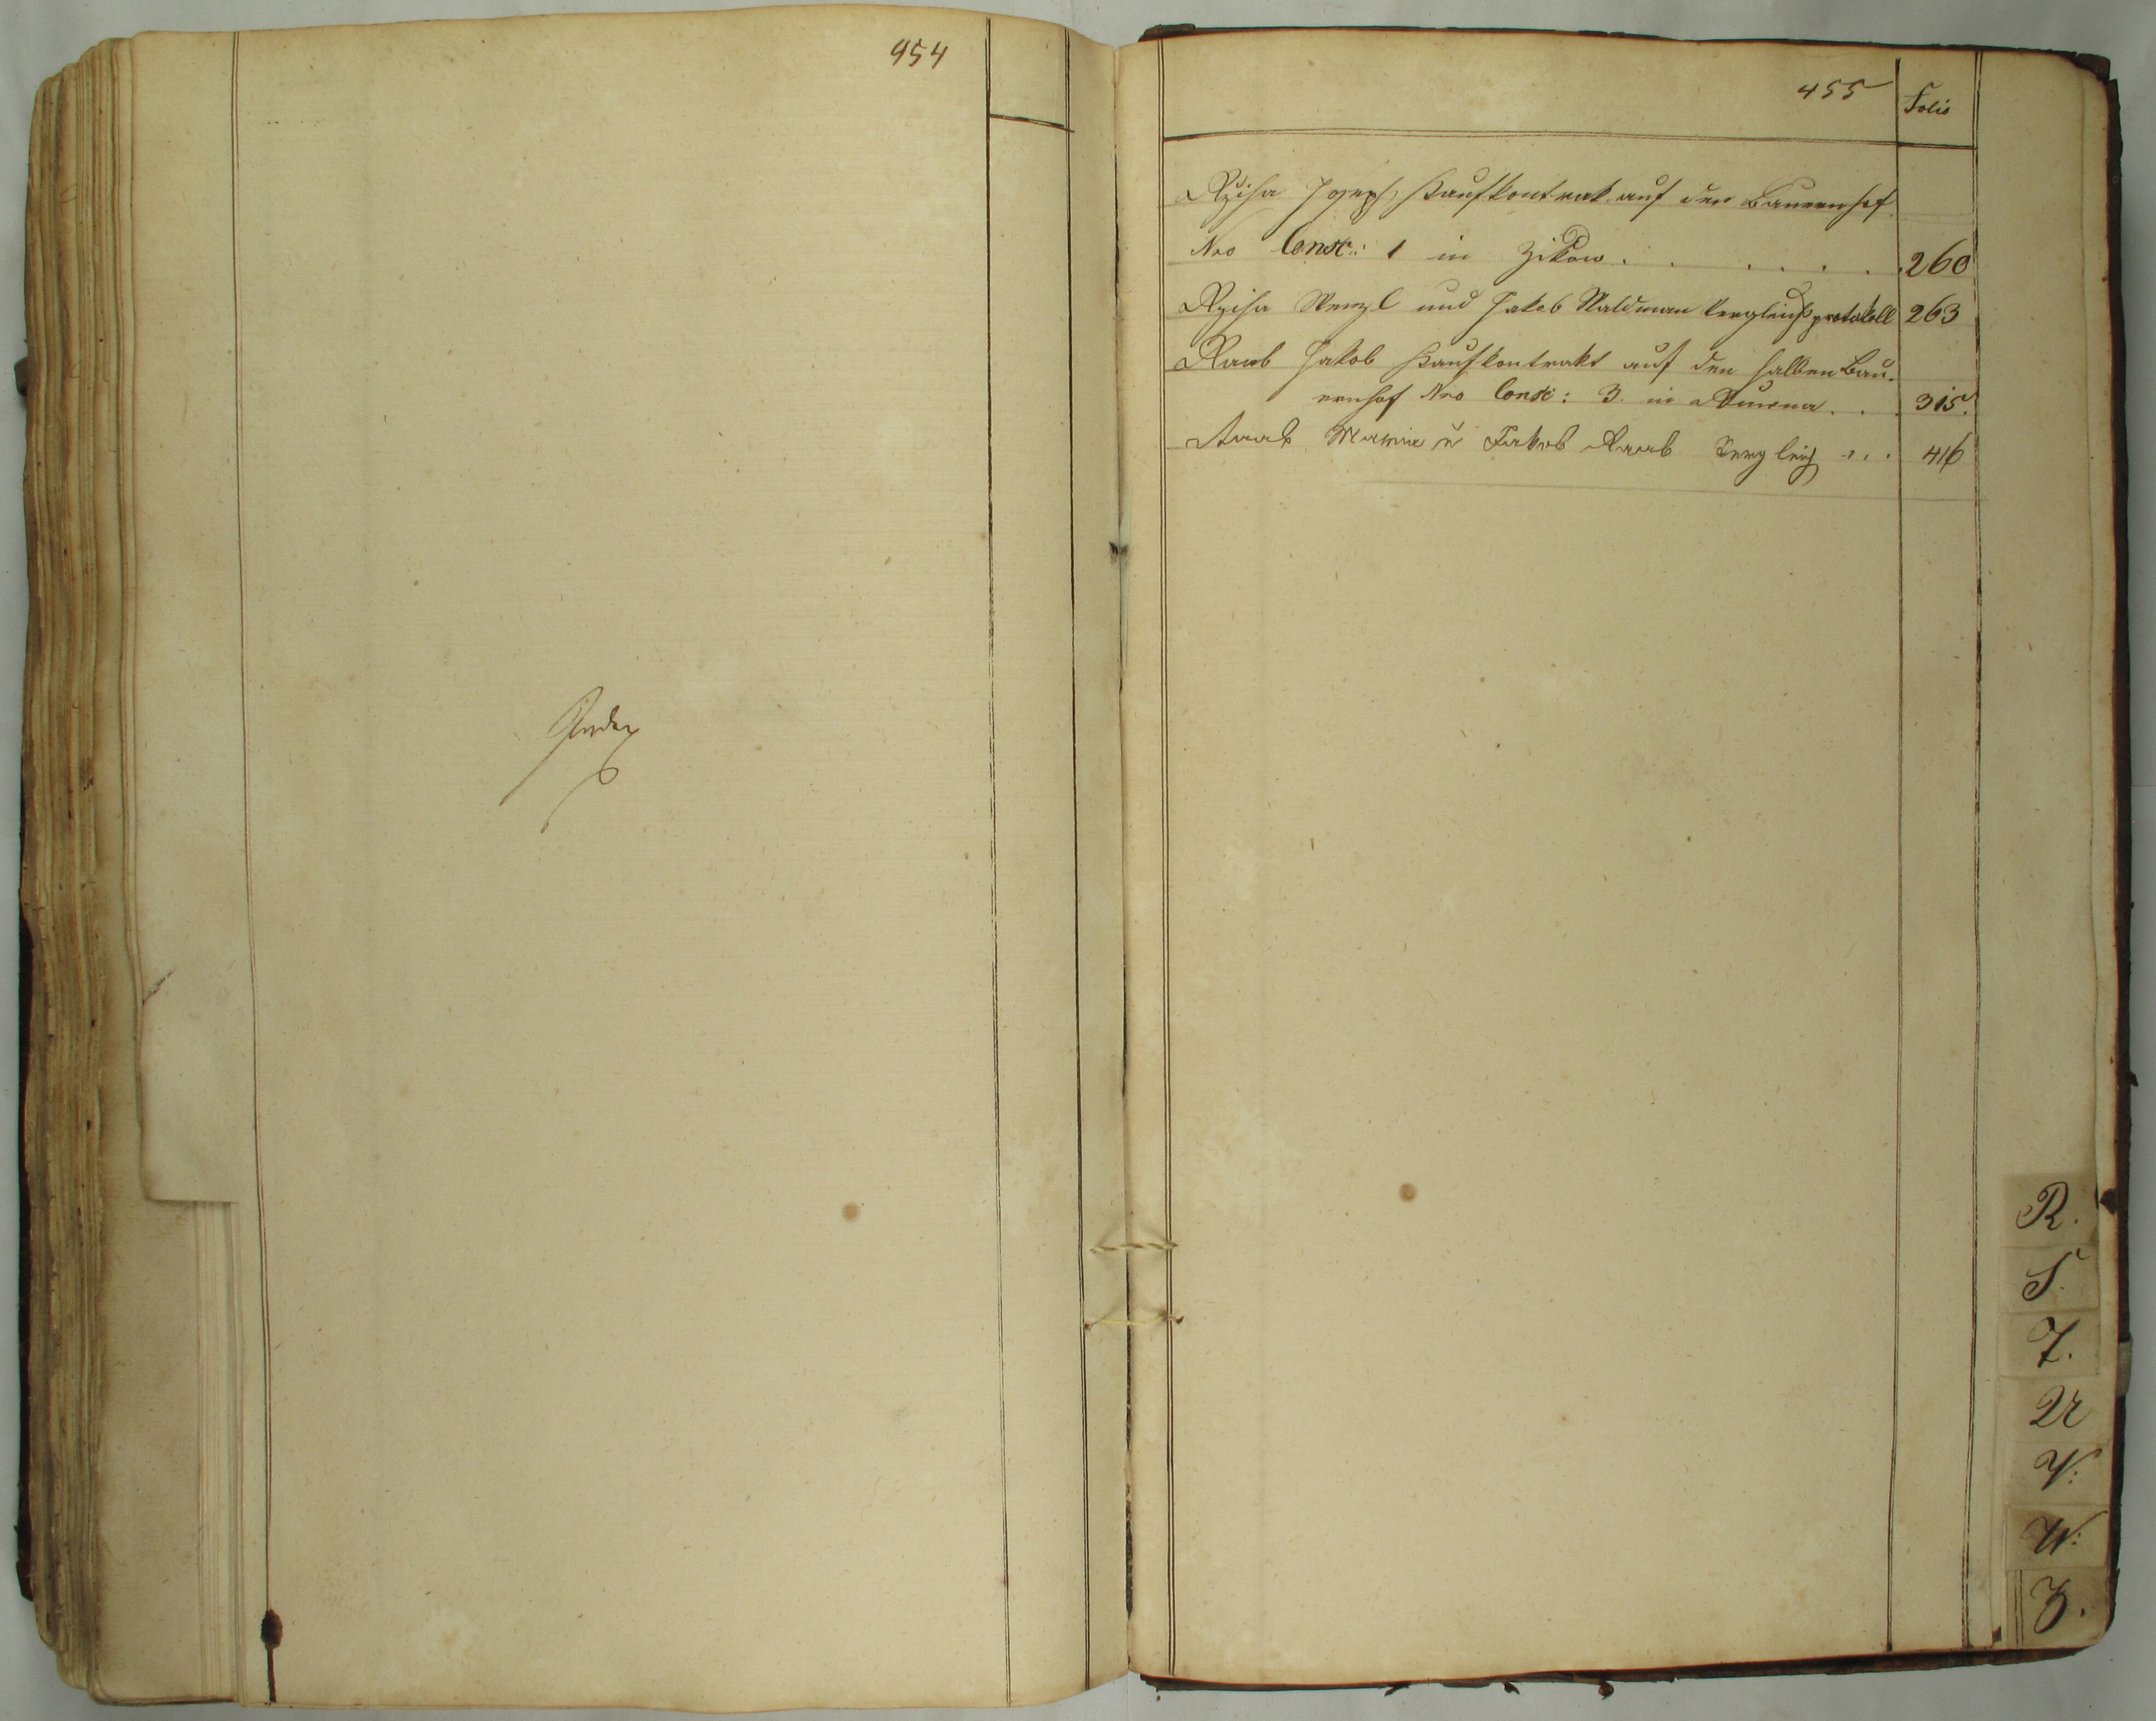 454
Index
455 Folio
Rziha Joseph Kaufkontrakt auf den Bauernhof
Nro Consc: 1 in Zikow . . . . . . 260
Rziha Wenzl und Jakob Waldman Vergleichsprotokoll 263
Raab Jakob Kaufkontrakt auf den halben Bau-
ernhof Nro Consc: 3. in . . . 315.
Raab Maria u Jakob Raab Vergleich . . . 416
R.
S.
T.
U
V:
W:
Z.